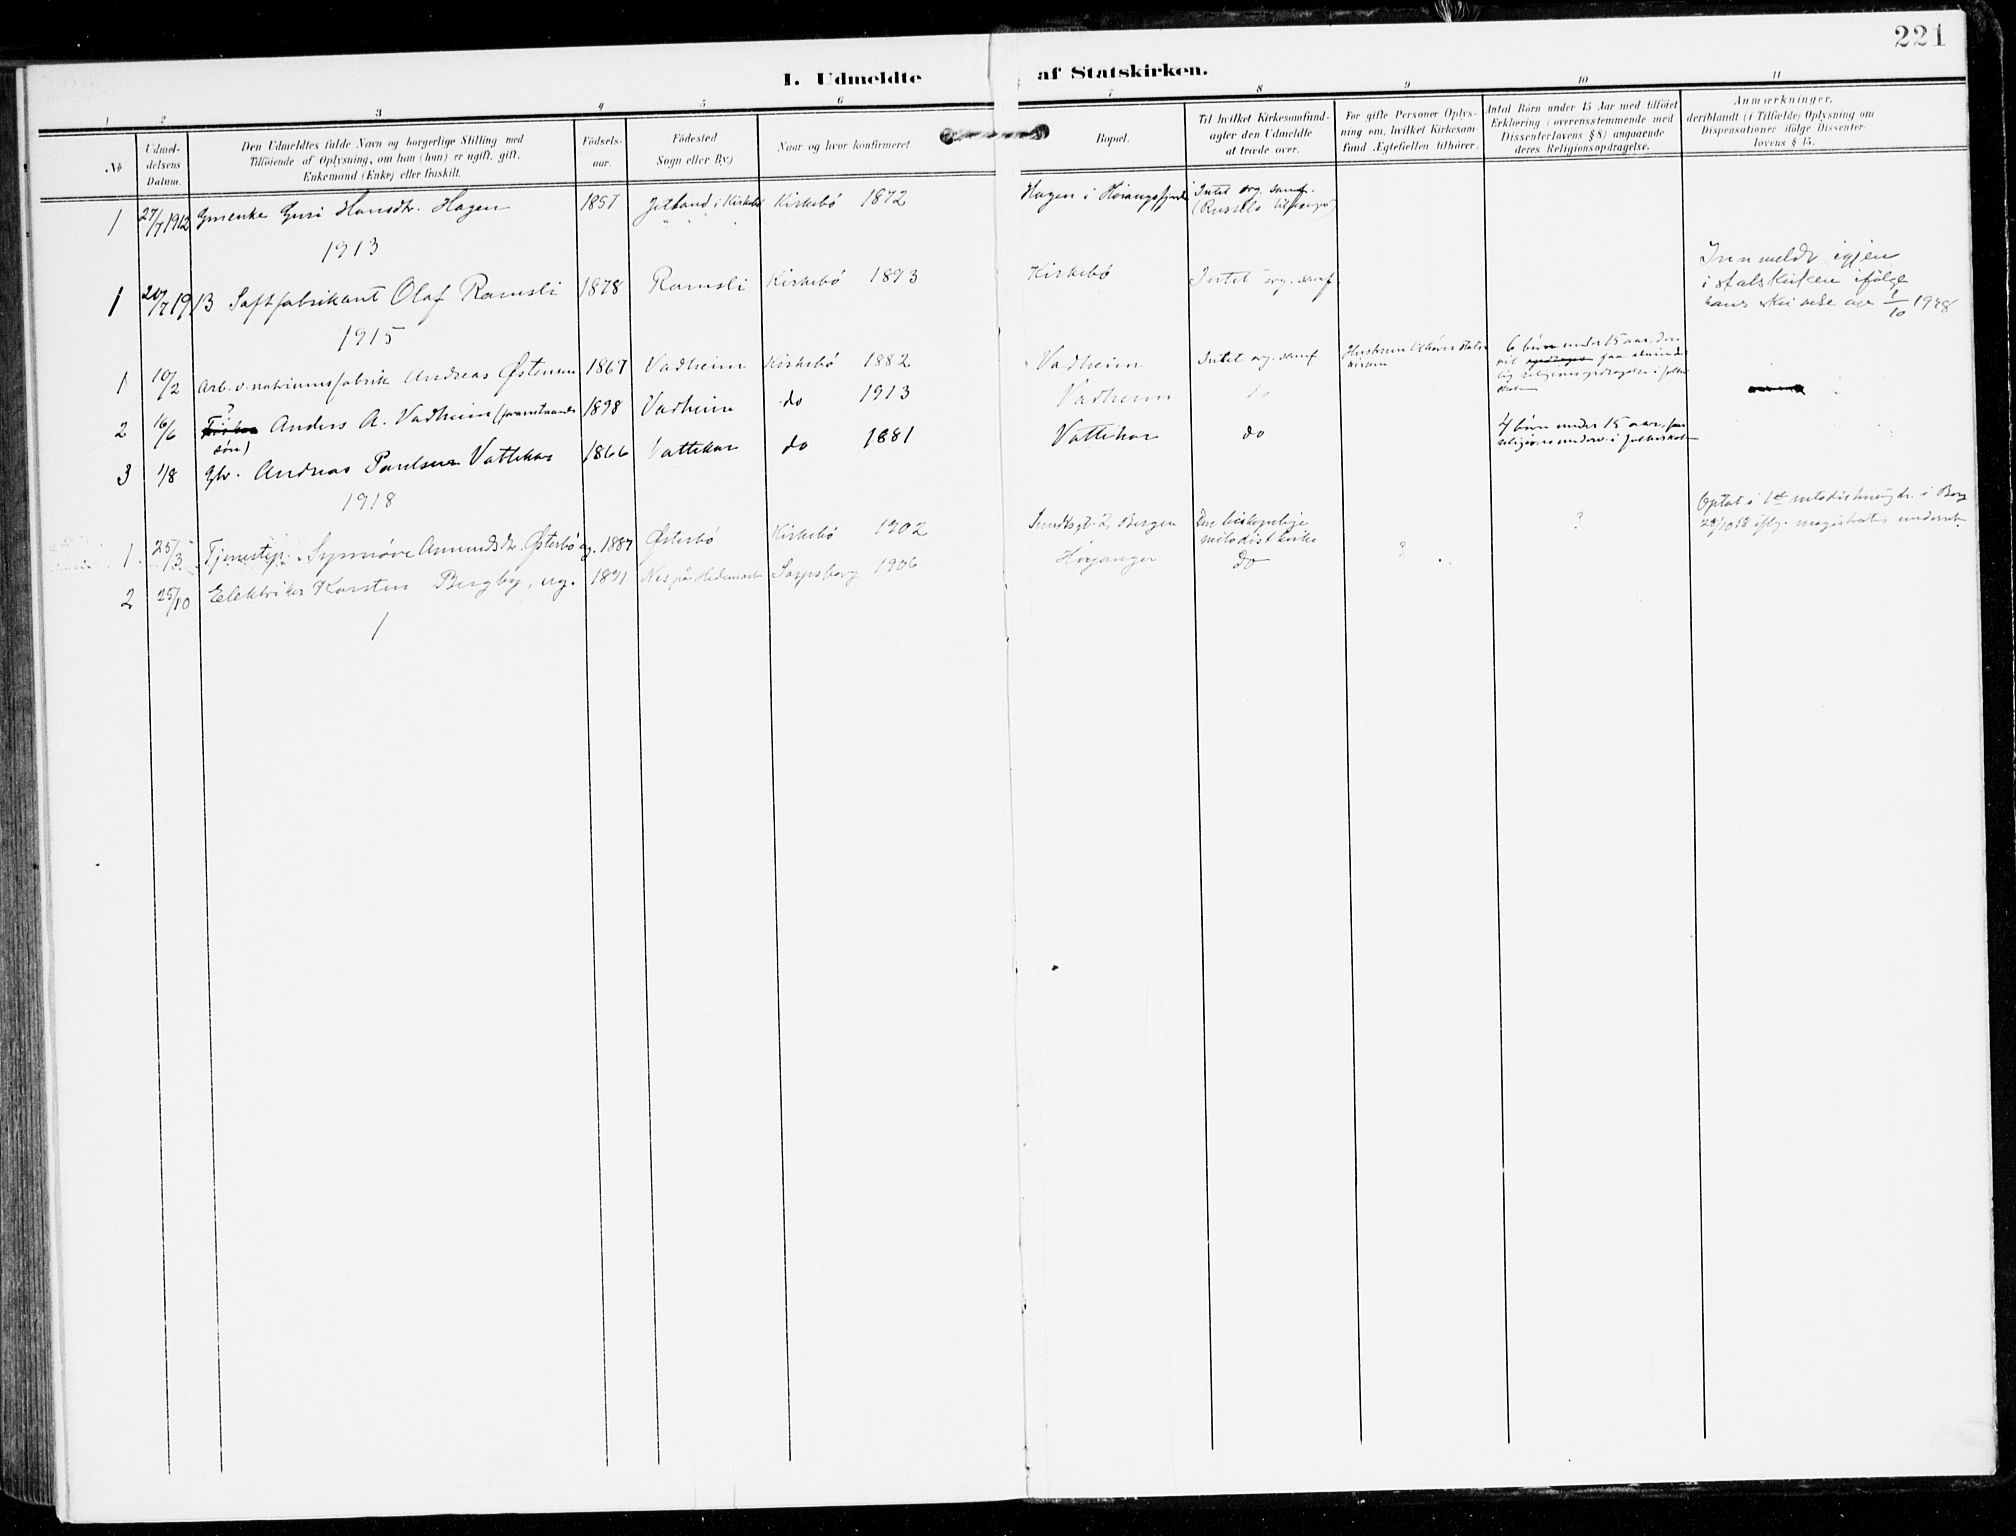 221
I. Udmeldte af Statskirken.
1 2 3 4 5 6 7 8 9 10 11
No
Udmel-
delsens
Datum.
Den Udmeldtes fulde Navn og borgerlige Stilling med
Tilföiende af Oplysning, om han (hun) er ugift, gift,
Enkemand (Enke) eller fraskilt.
Födsels-
aar.
Födested
Sogn eller By.)
Naar og hvor konfirmeret
Bopæl.
Til hvilket Kirkesamfund-
agter den Udmeldte
at træde over.
For gifte Personer Oplys-
ning om, hvilket Kirkesam-
fund Ægtefællen tilhörer.
Antal Börn under 15 Aar med tilföiet
Erklæring (overensstemmende med
Dissenterlovens § 8) angaaende
deres Religionsopdragelse.
Anmærkninger,
deriblandt (i Tilfælde) Oplysning om
Dispensationer ifölge Dissenter-
lovens § 15.
1 27/7 1912 Gmenke Guri Hansdtr. Hagen 1857 Jetland i Kirkebö Kirkebö 1872 Hagen i Höiangsfjord Intet org. samf.
(Russels tilhænger)
1913
1 20/7 1913 Saftfabrikant Olaf Ramsli 1878 Ramsli Kirkebö 1893 Kirkebö Intet org. samf.
Innmeldt igjen
i statskirken ifölge
hans skrivelse av 1/10 1948
1915
1 10/2 Arb. v. natriumsfabrik Andreas Östensen 1867 Vadheim Kirkebö 1882 Vadheim Intet org. samf Hustruen tilhörer stats-
kirken
6 börn under 15 aar. Den
vil opdrages faa alminde
lig religionsopdragelse i folke
skolen
2 16/6 Anders A. Vadheim (foranstaaende
sön) 1898 Vadheim do 1913 Vadheim do.
3 1/8 Gbr. Andreas Paulsen Vattekar 1866 Vattekar do 1881 Vattekar do
4 börn under 15 aar, faar
religionsunderv. i folkeskolen
1918
1 25/3 Tjenestep. Synnöve Amundsdtr. Österbö ug. 1887 Österbö Kirkebö 1902 Sundtsgt. 2, Bergen Den biskopelige
metodistkirke ?
Optat i 1st metodistmenigh. i Berg
29/10 18 iflg. magistratens underret.
2 25/10 Elektriker Karsten Bergby, ug. 1891 Nes på Hedemark Sarpsborg 1906 Höyanger Do ?